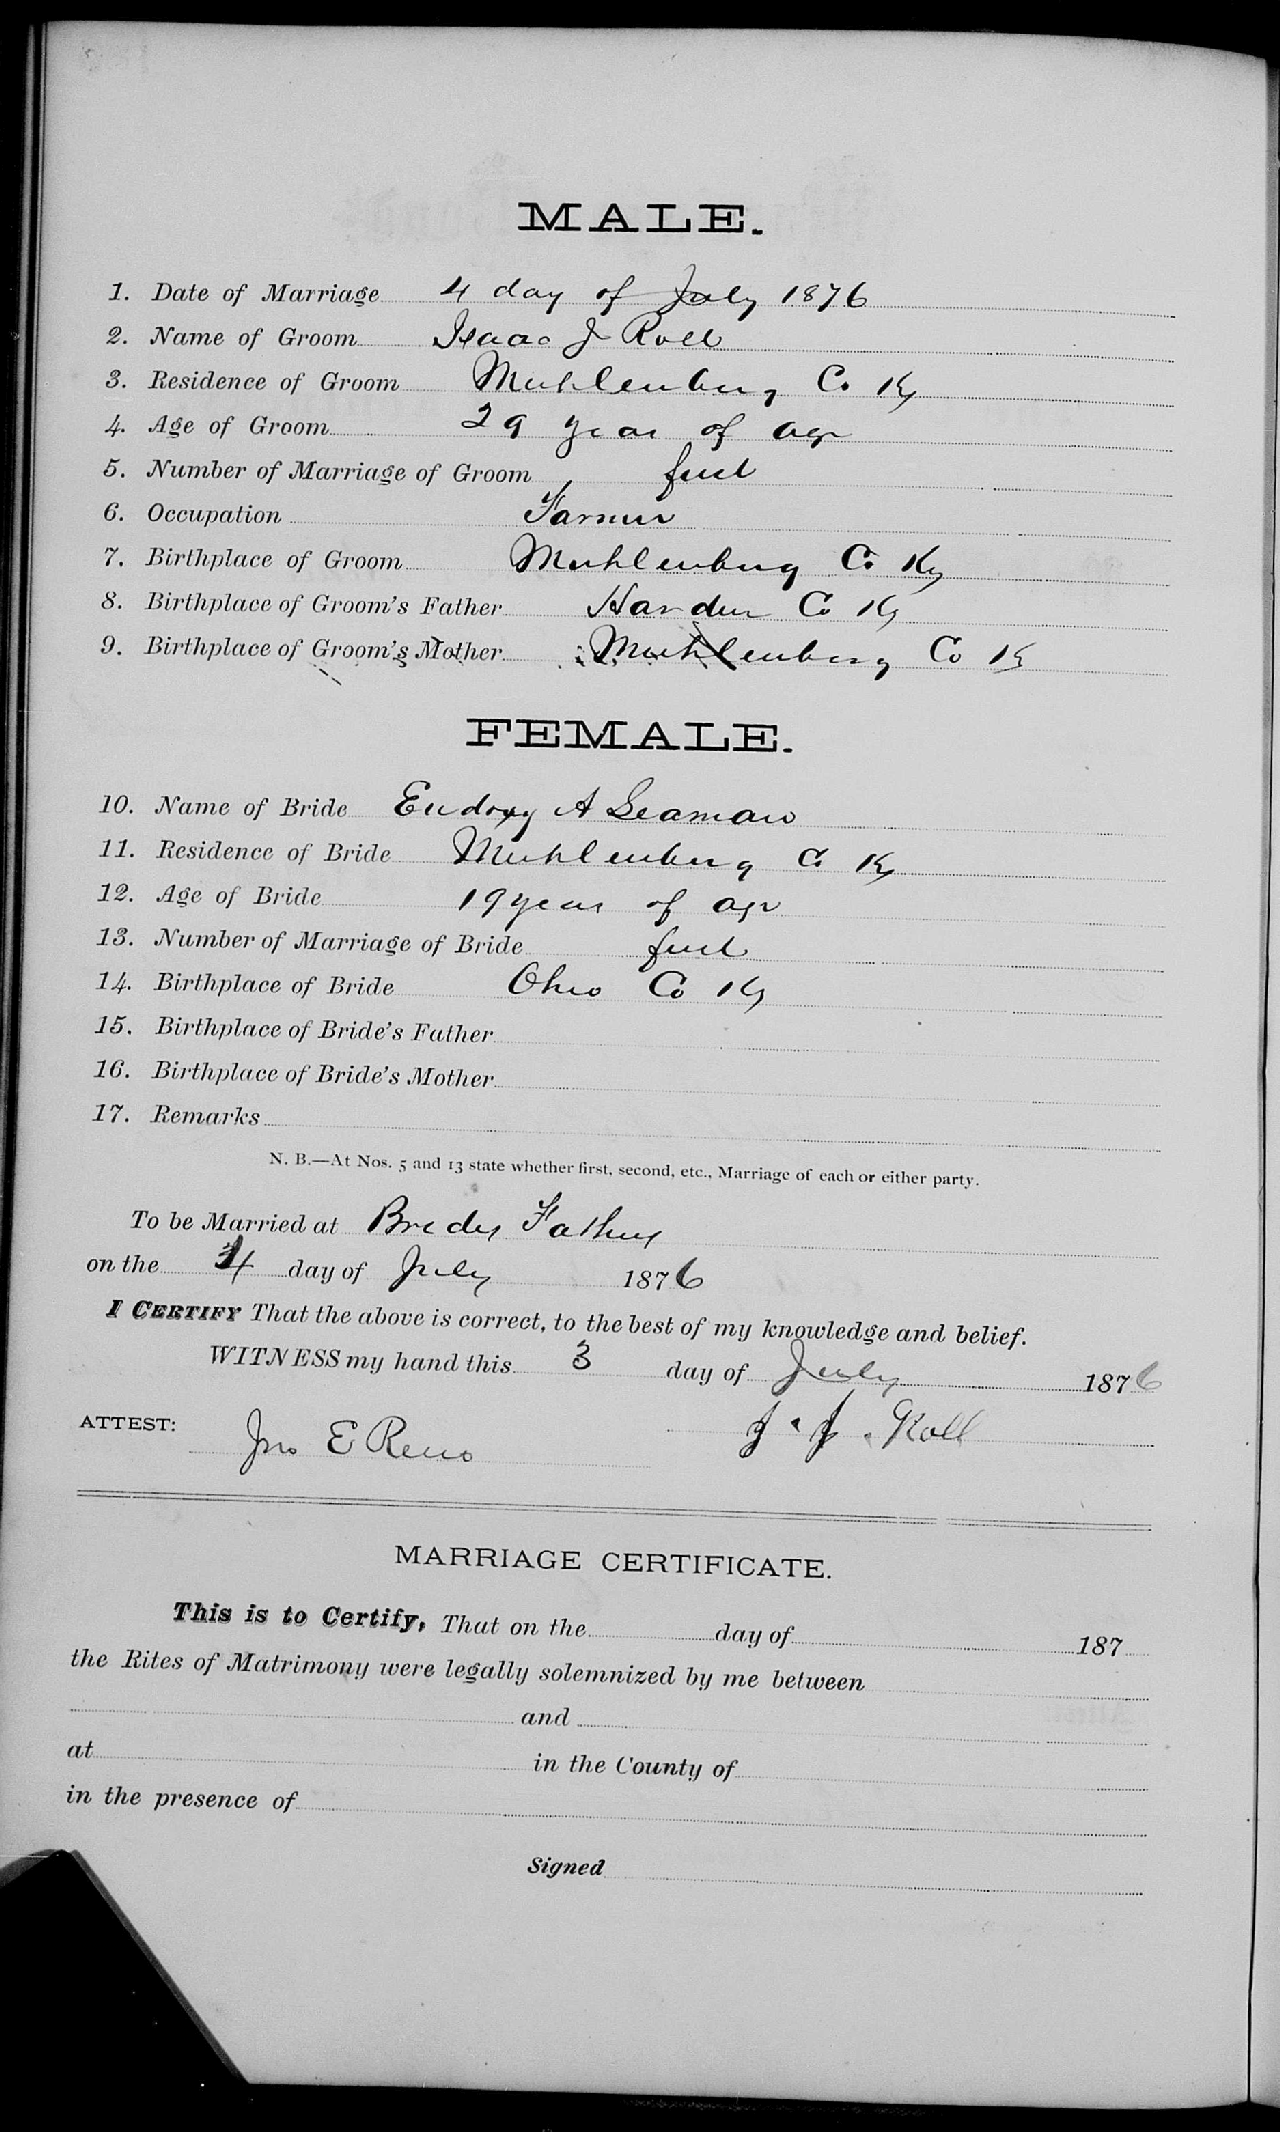 MALE.
1. Date of Marriage 4 day of July 1876
2. Name of Groom Isaac J Roll
3. Residence of Groom Muhlenburg Co Ky
4. Age of Groom 29 year of age
5. Number of Marriage of Groom first
6. Occupation Farmer
7. Birthplace of Groom Muhlenburg Co Ky
8. Birthplace of Groom's Father Hardin Co Ky
9. Birthplace of Groom's Mother Muhlenburg Co Ky
FEMALE.
10. Name of Bride Eudoxy A Leaman
11. Residence of Bride Muhlenburg Co Ky
12. Age of Bride 19 years of age
13. Number of Marriage of Bride first
14. Birthplace of Bride Ohio Co Ky
15. Birthplace of Bride's Father
16. Birthplace of Bride's Mother
17. Remarks
N. B.—At Nos. 5 and 13 state whether first, second, etc., Marriage of each or either party.
To be Married at Brides Fathers
on the 4 day of July 1876
I CERTIFY That the above is correct, to the best of my knowledge and belief.
WITNESS my hand this 3 day of July 1876
ATTEST: Jno E Reno J. J. Roll
MARRIAGE CERTIFICATE.
This is to Certify, That on the day of 187
the Rites of Matrimony were legally solemnized by me between
and
at in the County of
in the presence of
Signed